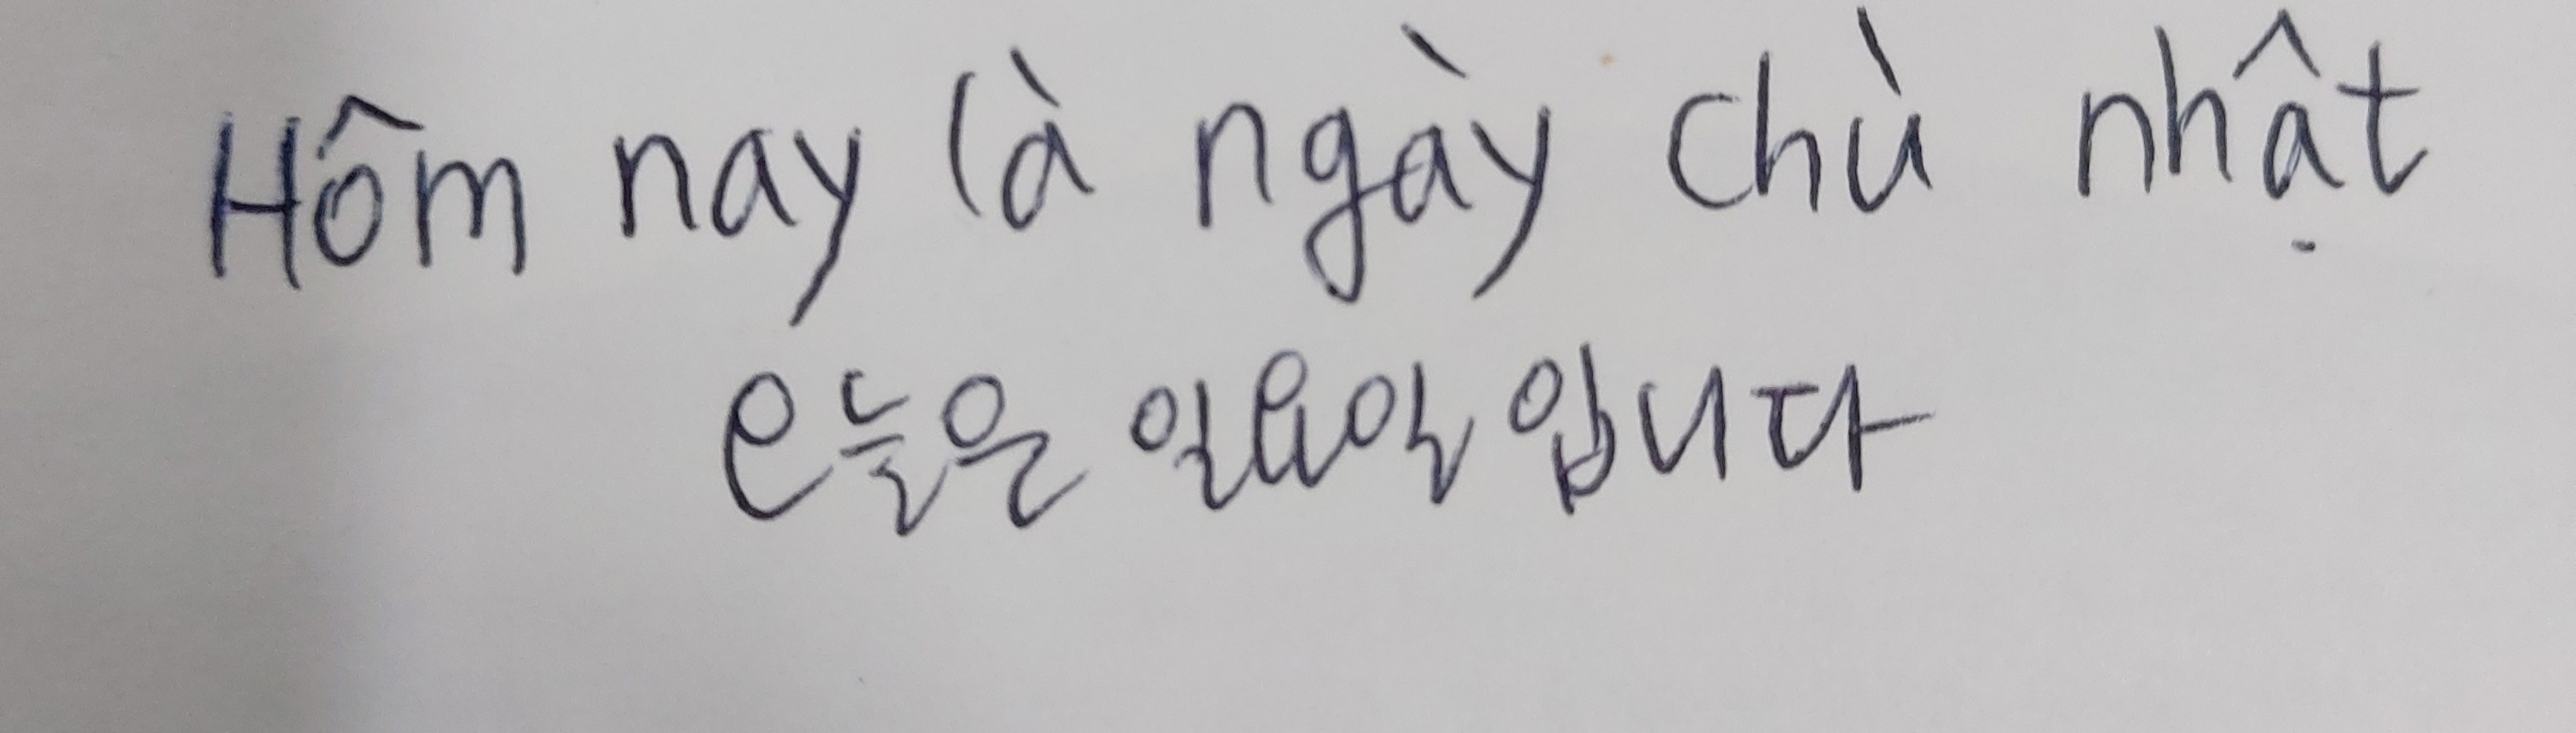 Hôm nay là ngày chù nhật
오늘은 일요일 입니다